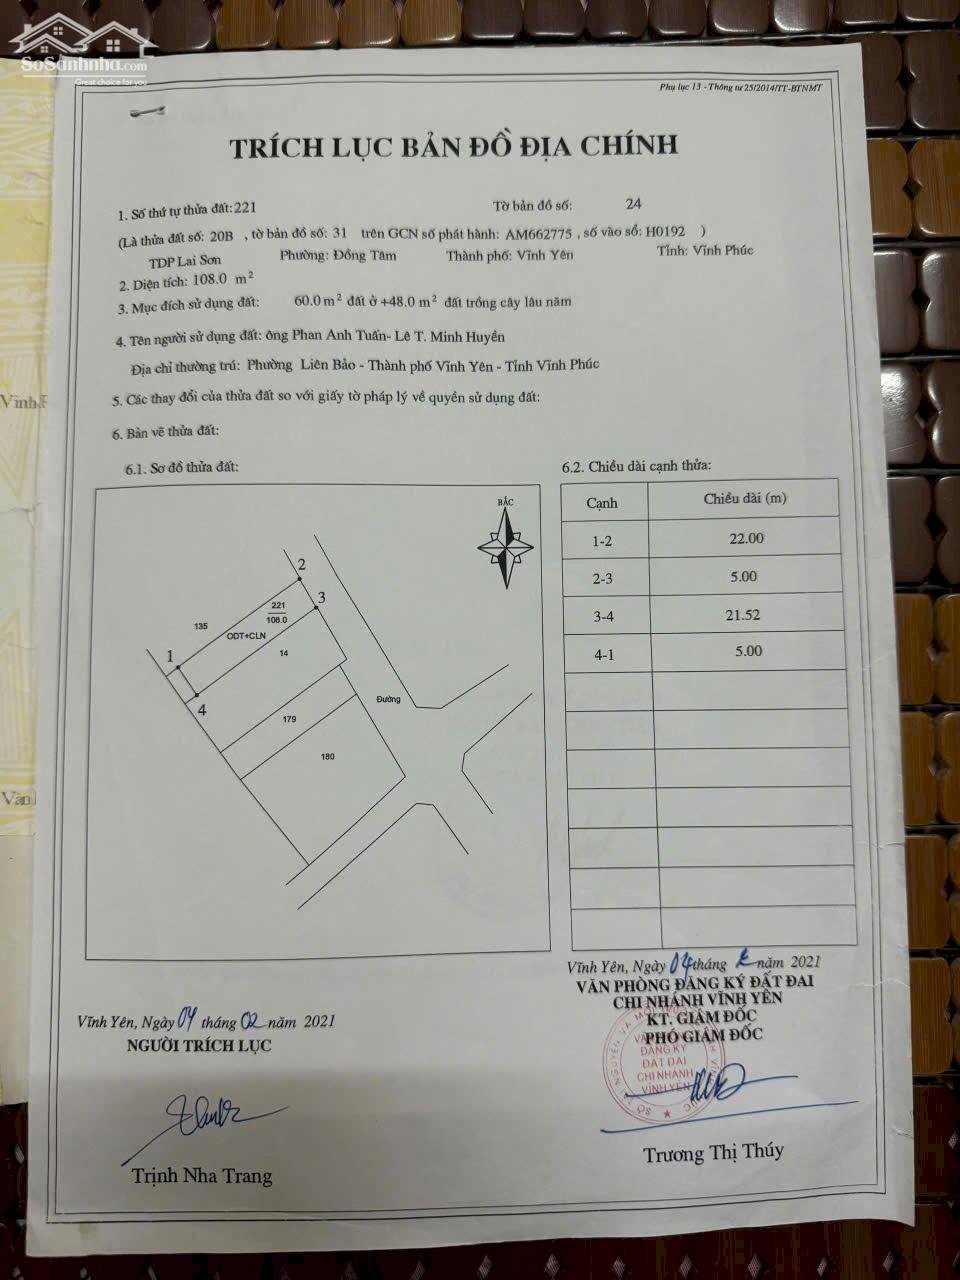 SoSanhnha.com
Great choice for you
Phụ lục 13 - Thông tư 25/2014/TT-BTNMT
TRÍCH LỤC BẢN ĐỒ ĐỊA CHÍNH
1. Số thứ tự thửa đất: 221 Tờ bản đồ số: 24
(Là thửa đất số: 20B , tờ bản đồ số: 31 trên GCN số phát hành: AM662775 , số vào sổ: H0192 )
TDP Lai Sơn Phường: Đồng Tâm Thành phố: Vĩnh Yên Tỉnh: Vĩnh Phúc
2. Diện tích: 108.0 m²
3. Mục đích sử dụng đất: 60.0 m² đất ở +48.0 m² đất trồng cây lâu năm
4. Tên người sử dụng đất: ông Phan Anh Tuấn- Lê T. Minh Huyền
Địa chỉ thường trú: Phường Liên Bảo - Thành phố Vĩnh Yên - Tỉnh Vĩnh Phúc
5. Các thay đổi của thửa đất so với giấy tờ pháp lý về quyền sử dụng đất:
6. Bản vẽ thửa đất:
6.1. Sơ đồ thửa đất:
BẮC
2
3
221
108.0
135
ODT+CLN
14
1
4
179
180
Đường
6.2. Chiều dài cạnh thửa:
Cạnh Chiều dài (m)
1-2 22.00
2-3 5.00
3-4 21.52
4-1 5.00
Vĩnh Yên, Ngày 04 tháng 2 năm 2021
VĂN PHÒNG ĐĂNG KÝ ĐẤT ĐAI
CHI NHÁNH VĨNH YÊN
KT. GIÁM ĐỐC
PHÓ GIÁM ĐỐC
ĐĂNG KÝ
ĐẤT ĐAI
CHI NHÁNH
VĨNH YÊN
Trương Thị Thúy
Vĩnh Yên, Ngày 04 tháng 02 năm 2021
NGƯỜI TRÍCH LỤC
Trịnh Nha Trang